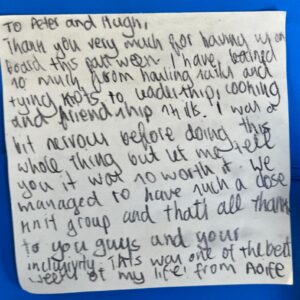 To Peter and Hugh,
Thank you very much for having us on
board this past week. I have learned
so much from hauling sails and
tying knots to leadership, cooking
and friendship skills. I was a
bit nervous before doing this
whole thing but let me tell
you it was so worth it. We
managed to have such a close
knit group and thats all thanks
to you guys and your
inclusivity. This was one of the best
weeks of my life! from Aoife